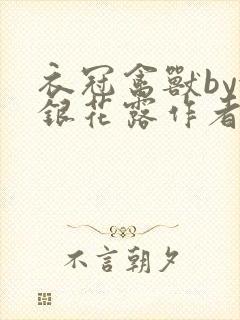 衣冠禽獸by
銀花露作者
不言朝夕